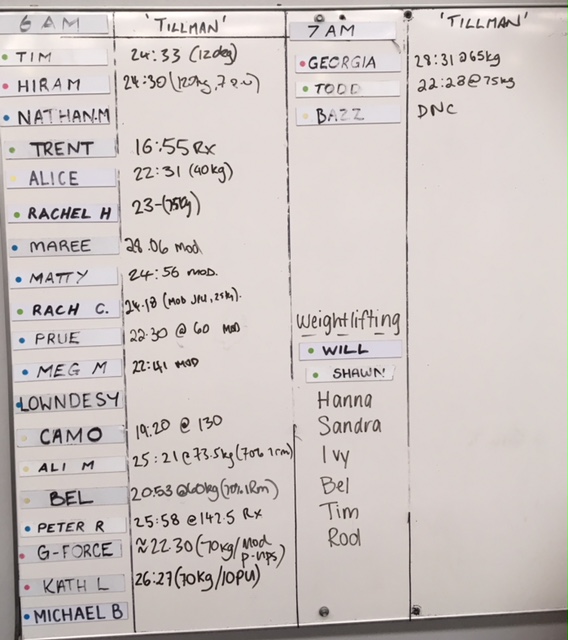 6 AM 'TILLMAN'
TIM 24:33 (120kg)
HIRAM 24:30 (120kg,
NATHAN.M
TRENT 16:55 Rx
ALICE 22:31 (40kg)
RACHEL H 23-(75kg)
MAREE 28.06 mod
MATTY 24:56 MOD.
RACH C. 24.18 (Mod
PRUE 22:30 @ 60 MOD
MEG M 22:41 MOD
LOWNDESY
CAMO 19:20 @ 130
ALI M 25:21@73.5kg(70% 1rm)
BEL 20:53 @60kg(70% 1Rm)
PETER R 25:58 @142.5 Rx
G-FORCE ≈22:30 (70kg/Mod
p-ups)
KATH L 26:27(70kg/10PU)
MICHAEL B
7 AM 'TILLMAN'
GEORGIA 28:31 @65kg
TODD 22:28@75kg
BAZZ DNC
Weightlifting
WILL
SHAWN
Hanna
Sandra
Ivy
Bel
Tim
Rod